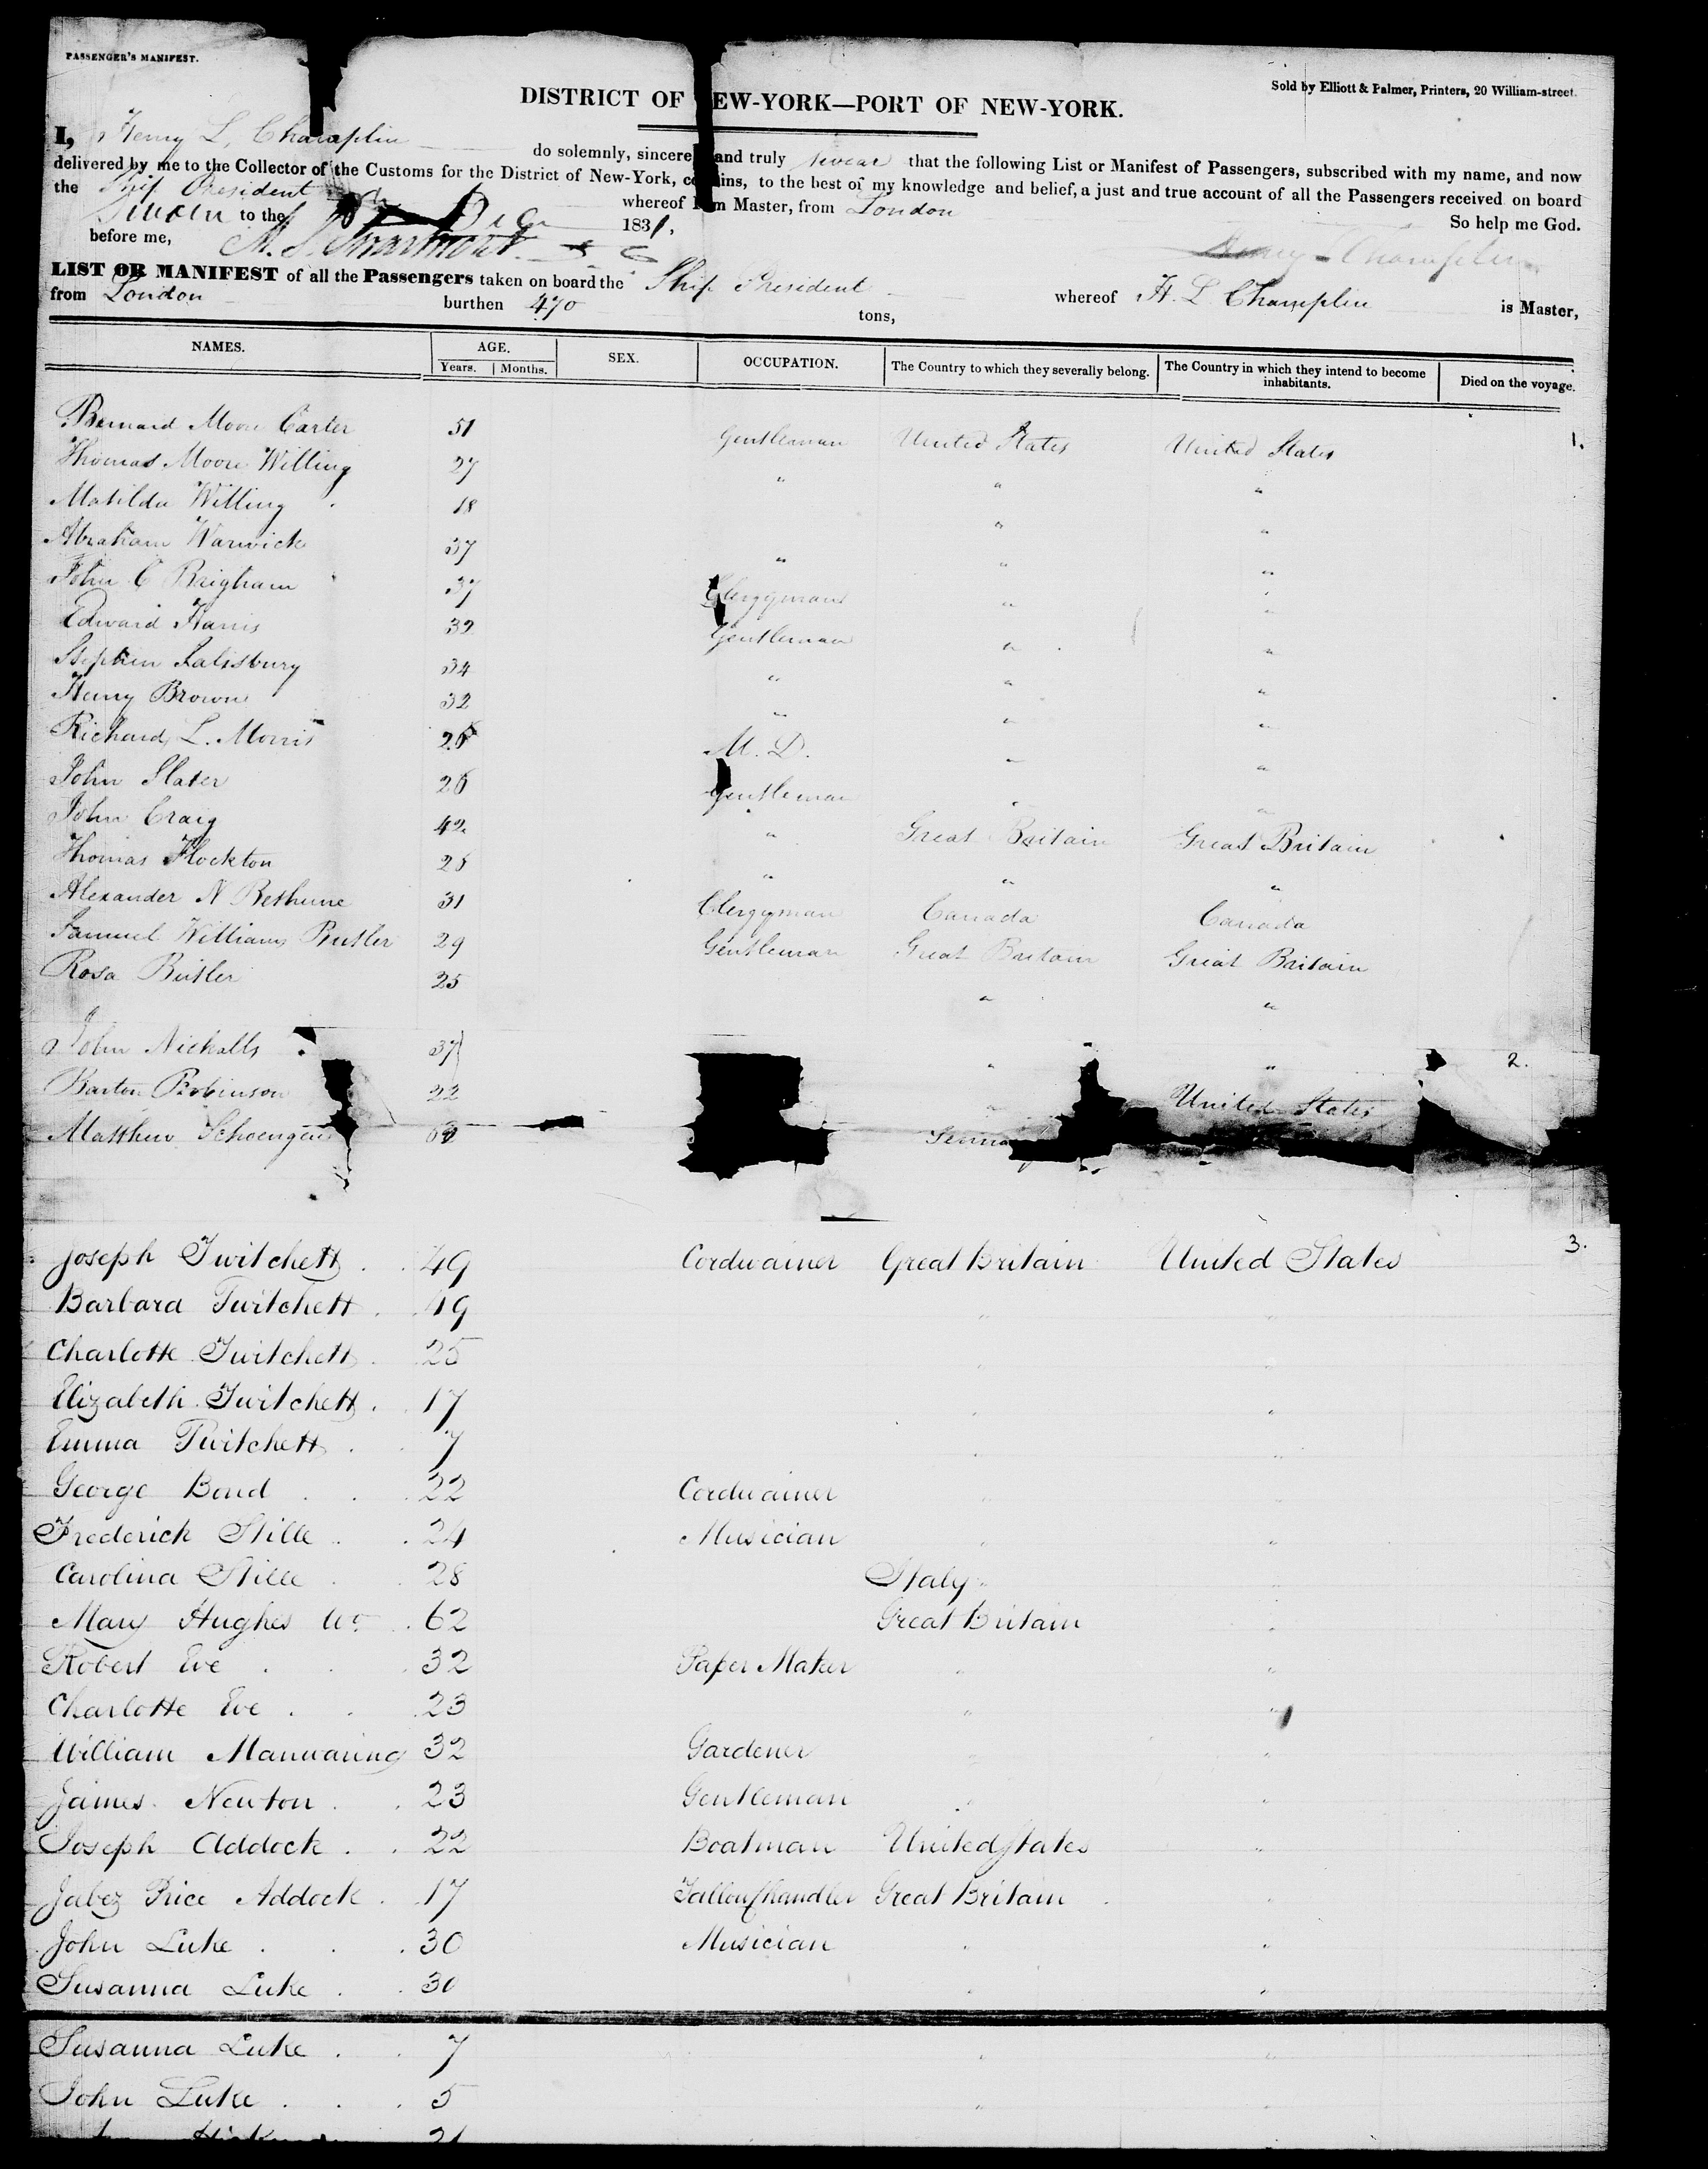 PASSENGER'S MANIFEST.
Sold by Elliott & Palmer, Printers, 20 William-street.
DISTRICT OF EW-YORK—PORT OF NEW-YORK.
I, Henry L. Champlin do solemnly, sincere and truly swear that the following List or Manifest of Passengers, subscribed with my name, and now
delivered by me to the Collector of the Customs for the District of New-York, co ins, to the best of my knowledge and belief, a just and true account of all the Passengers received on board
the Ship President whereof I am Master, from London
to the 1831, So help me God.
before me, Henry L Champlin
LIST OR MANIFEST of all the Passengers taken on board the Ship President whereof H. L. Champlin is Master,
from London burthen 470 tons,
NAMES. AGE. SEX. OCCUPATION. The Country to which they severally belong. The Country in which they intend to become inhabitants. Died on the voyage.
Years. Months.
Bernard Moore Carter 51 Gentleman United States United States 1.
Thomas Moore Willing 27 " " "
Matilda Willing 18 " "
Abraham Warwick 37 " " "
John C Brigham 37 Clergyman " "
Edward Harris 32 Gentleman " "
Stephen Salisbury 34 " " "
Henry Brown 32 " " "
Richard L. Morris M. D. " "
John Slater 26 Gentleman " "
John Craig 42 " Great Britain Great Britain
Thomas Flockton " " "
Alexander N Bethune 31 Clergyman Canada Canada
Samuel Williams Butler 29 Gentleman Great Britain Great Britain
Rosa Butler 25 " "
John Nickalls 37 " " 2.
Barton Robinson 22 " United States
Matthew
Joseph Twitchett 49 Cordwainer Great Britain United States 3.
Barbara Twitchett 49 " "
Charlotte Twitchett 25 " "
Elizabeth Twitchett 17 " "
Emma Twitchett 7 " "
George Bond 22 Cordwainer " "
Frederick Stille 24 Musician " "
Carolina Stille 28 Italy "
Mary Hughes Wo 62 Great Britain "
Robert Eve 32 Paper Maker " "
Charlotte Eve 23 " "
William Manwaring 32 Gardener " "
James Newton 23 Gentleman " "
Joseph Addock 22 Boatman United States "
Jabez Price Addock 17 Tallow Chandler Great Britain "
John Luke 30 Musician " "
Susanna Luke 30 " "
Susanna Luke 7 " "
John Luke 5 " "